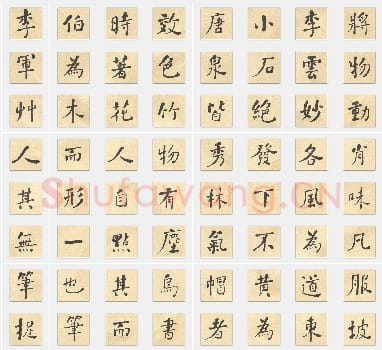 李伯時效唐小李將
軍為著色泉石雲物
艸木花竹皆絕妙動
人而人物秀發各肖
其形自有林下風味
無一點塵氣不為凡
筆也其烏帽黃道服
捉筆而書者為東坡
Shufawang.CN